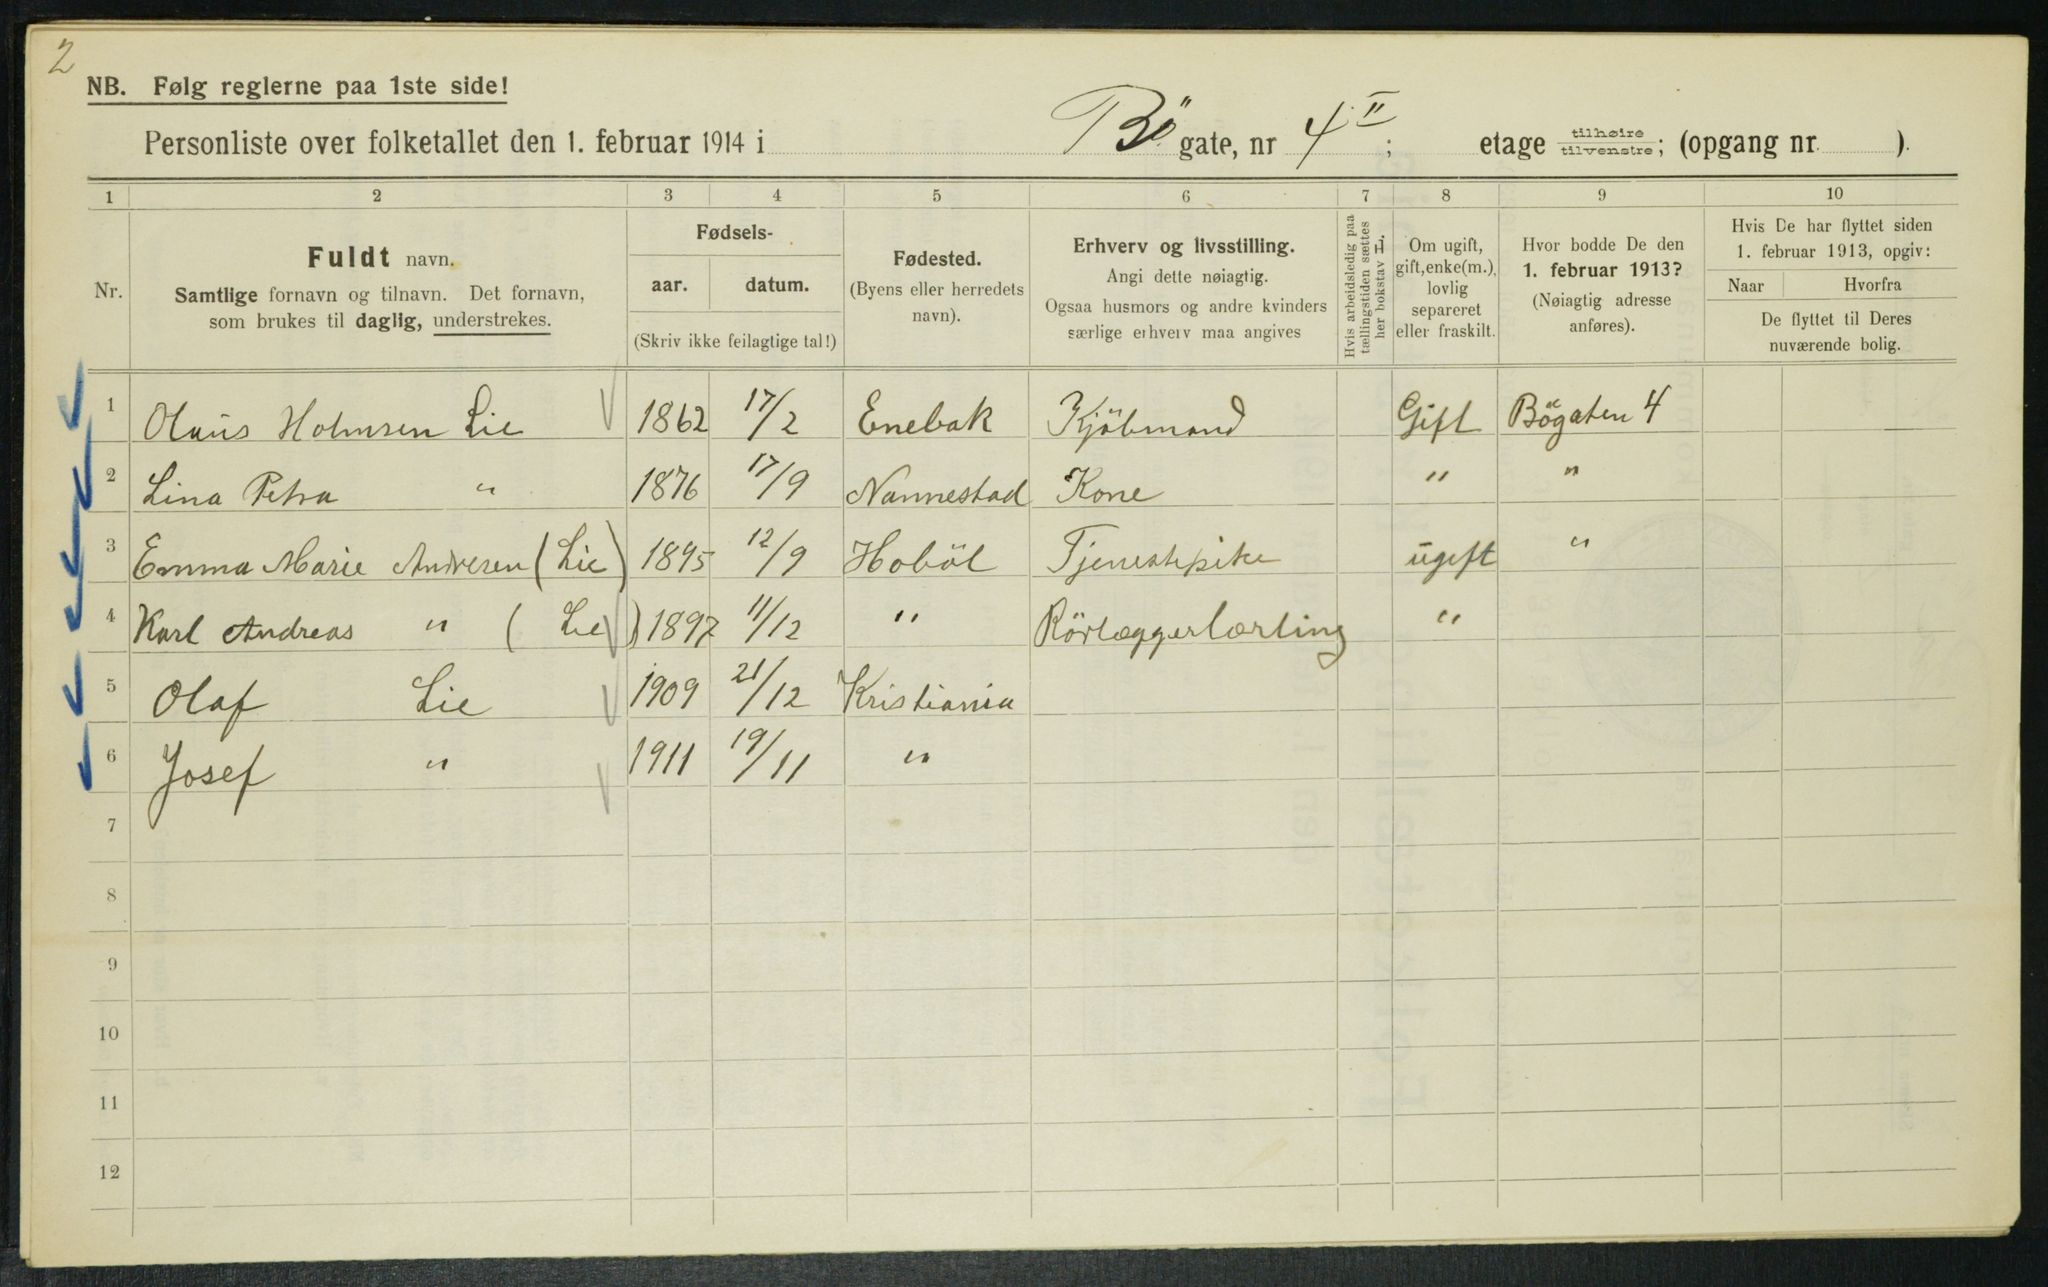 2
NB. Følg reglerne paa 1ste side!
Personliste over folketallet den 1. februar 1914 i Bö gate, nr 4 II; etage tilhøire / tilvenstre; (opgang nr ).
1 2 3 4 5 6 7 8 9 10
Nr.
Fuldt navn.
Samtlige fornavn og tilnavn. Det fornavn,
som brukes til daglig, understrekes.
Fødsels-
aar. datum.
(Skriv ikke feilagtige tal!)
Fødested.
(Byens eller herredets
navn).
Erhverv og livsstilling.
Angi dette nøiagtig.
Ogsaa husmors og andre kvinders
særlige erhverv maa angives
Hvis arbeidsledig paa
tællingstiden sættes
her bokstav L.
Om ugift,
gift, enke(m.),
lovlig
separeret
eller fraskilt.
Hvor bodde De den
1. februar 1913?
(Nøiagtig adresse
anføres).
Hvis De har flyttet siden
1. februar 1913, opgiv:
Naar Hvorfra
De flyttet til Deres
nuværende bolig.
1 Olaus Holmsen Lie 1862 17/2 Enebak Kjöbmand Gift Bögaten 4
2 Lina Petra " 1876 17/9 Nannestad Kone " "
3 Emma Marie Andresen (Lie) 1895 12/9 Haböl Tjenestepike ugift "
4 Karl Andreas " (Lie) 1897 11/12 " Rörlæggerlærling "
5 Olaf Lie 1909 21/12 Kristiania
6 Josef " 1911 19/11 "
7
8
9
10
11
12